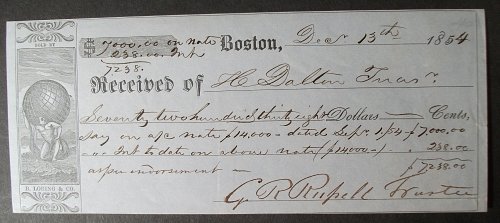 SOLD BY
B. LORING & CO.
$ 7000.00 on note
238.00 Int
7238.
Boston, Decr 13th 1854
Received of H Dalton Treasr.
Seventy two hundred thirty eight Dollars — Cents,
Say on a/c note $14,000 - dated Sepr. 1/54 - $7000.00
" " Int to date on above note ($14000-) 238.00
as per endorsement — $7238.00
G. R. Russell Trustee